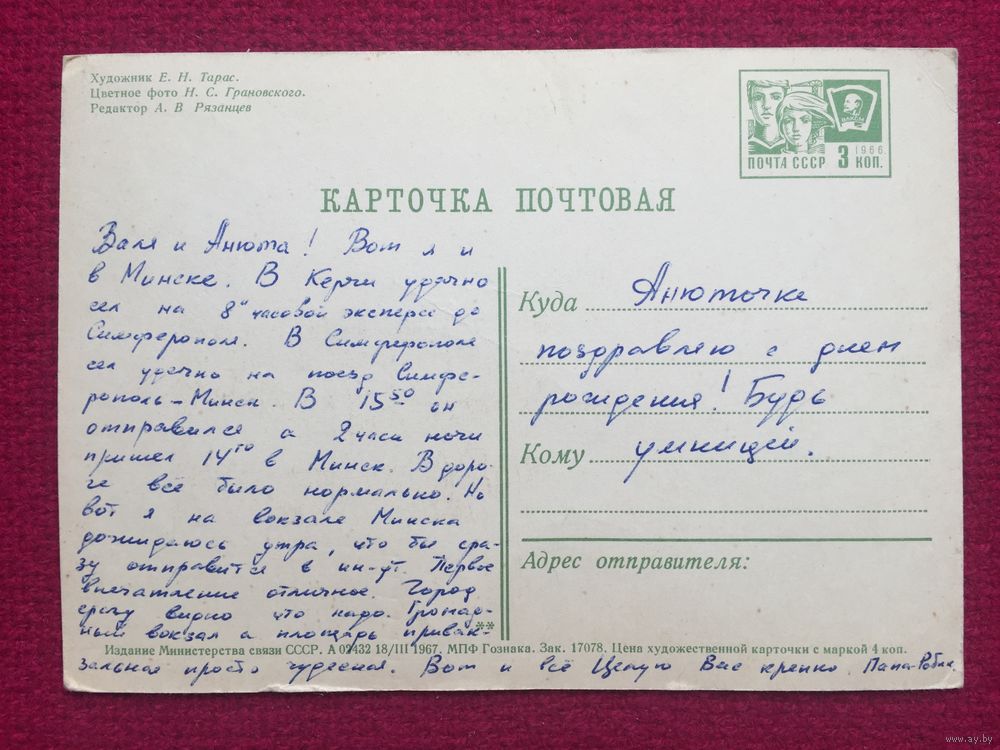 Художник Е. Н. Тарас.
Цветное фото Н. С. Грановского.
Редактор А. В Рязанцев
ВЛКСМ
1966
ПОЧТА СССР 3 КОП.
КАРТОЧКА ПОЧТОВАЯ
Валя и Анюта! Вот я и
в Минске. В Керчи удачно
сел на 8и часовой экспресс до
Симферополя. В Симферополе
сел удачно на поезд Симфе-
рополь – Минск. В 15 50 он
отправился а 2 часа ночи
пришел 14го в Минск. В доро-
ге всё было нормально. Но
вот я на вокзале Минска
дожидаюсь утра, что бы сра-
зу отправится в ин-ут. Первое
впечатление отличное. Город
сразу видно что надо. Громад-
ный вокзал а площадь привок-
зальная просто чудесная. Вот и всё Целую Вас крепко Папа-
Куда Анюточке
поздравляю с днем
рождения! Будь
Кому умницей.
Адрес отправителя:
**
Издание Министерства связи СССР. А 02432 18/III 1967. МПФ Гознака. Зак. 17078. Цена художественной карточки с маркой 4 коп.
www.ay.by